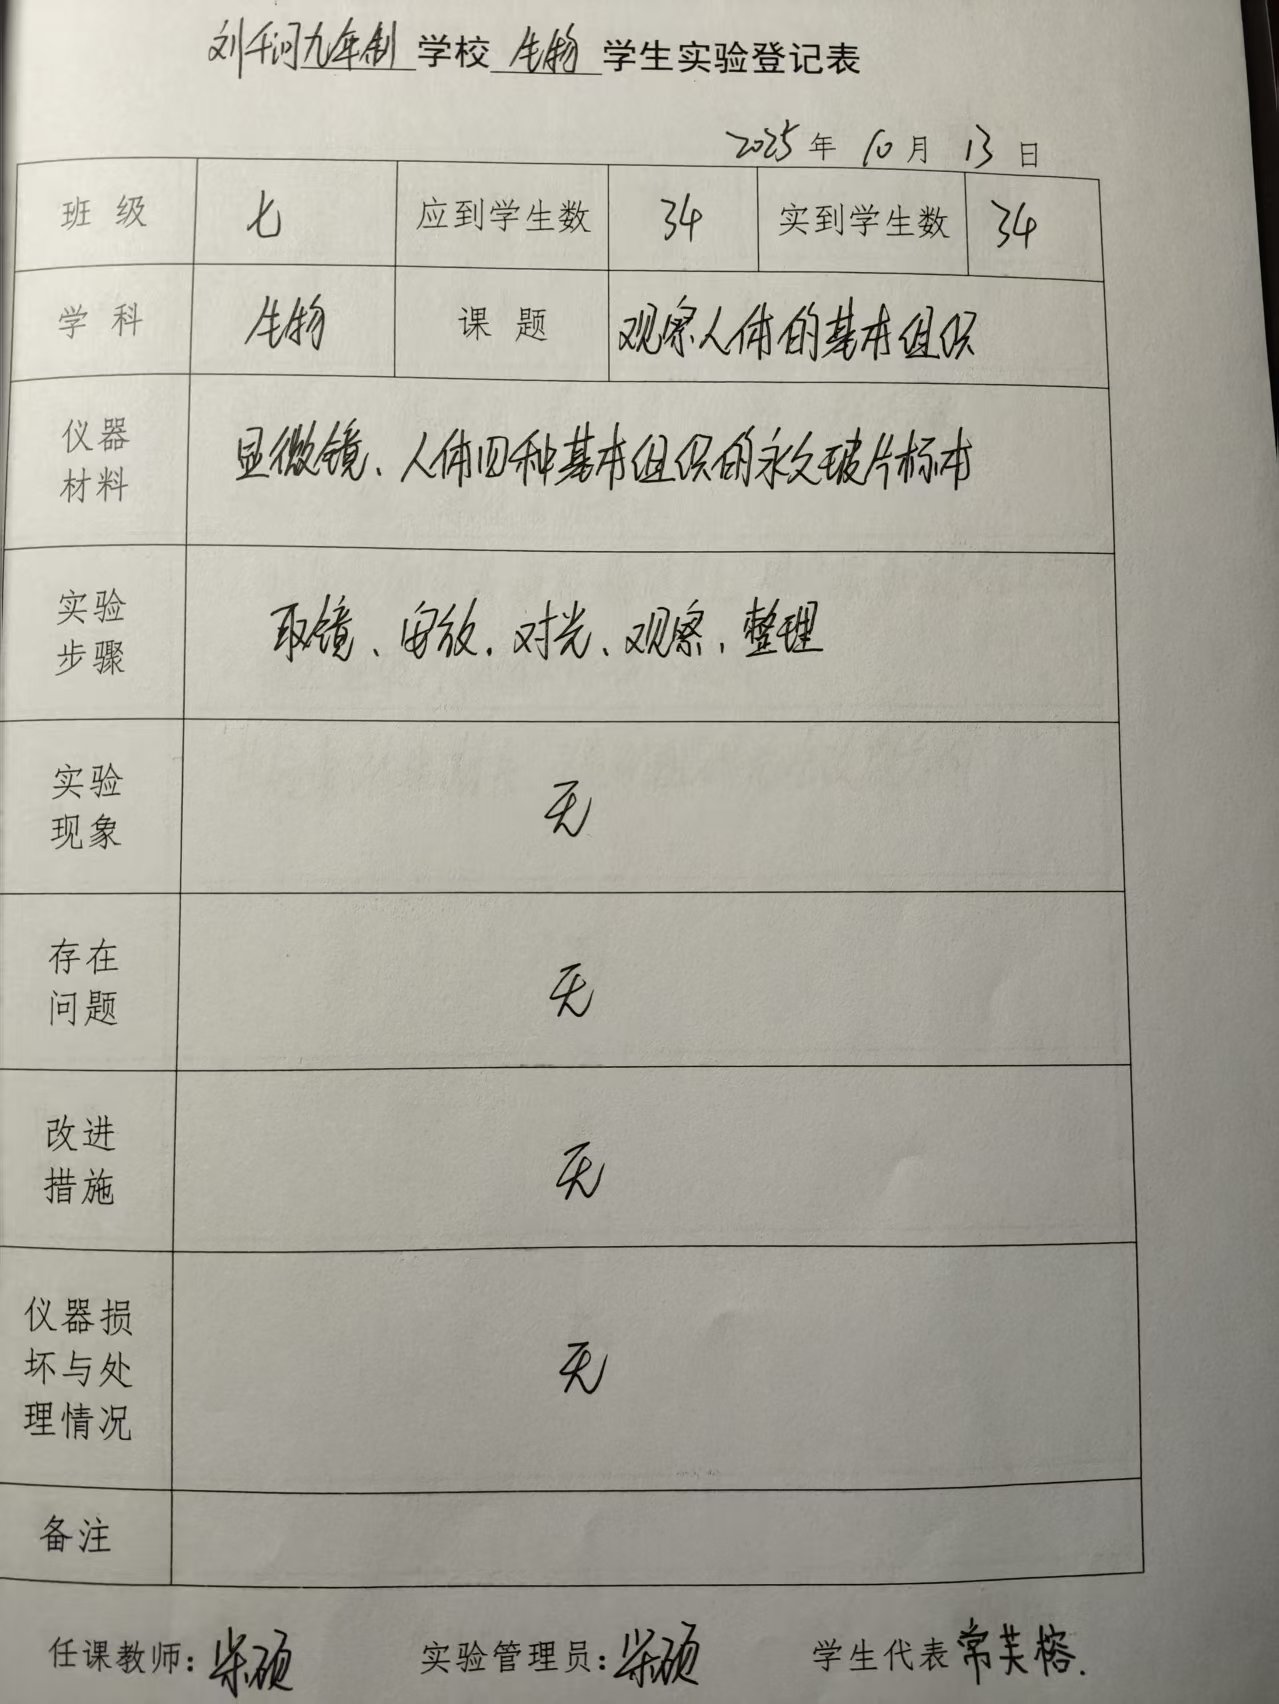 刘千河九年制学校 生物 学生实验登记表
2025年 10月 13日
班级 七 应到学生数 34 实到学生数 34
学科 生物 课题 观察人体的基本组织
仪器
材料
显微镜、人体四种基本组织的永久玻片标本
实验
步骤
取镜、安放、对光、观察、整理
实验
现象
无
存在
问题
无
改进
措施
无
仪器损
坏与处
理情况
无
备注
任课教师: 柴硕 实验管理员: 柴硕 学生代表 常芙榕.